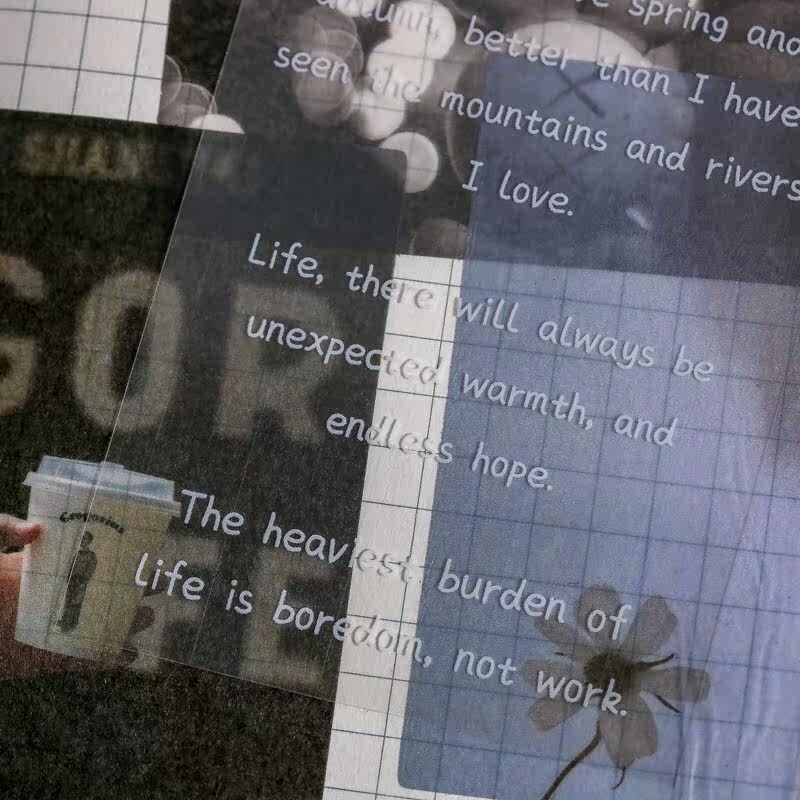 spring and
autumn, better than I have
seen the mountains and rivers
I love.
Life, there will always be
unexpected warmth, and
endless hope.
The heaviest burden of
life is boredom, not work.
GOR
FE
Gregorys